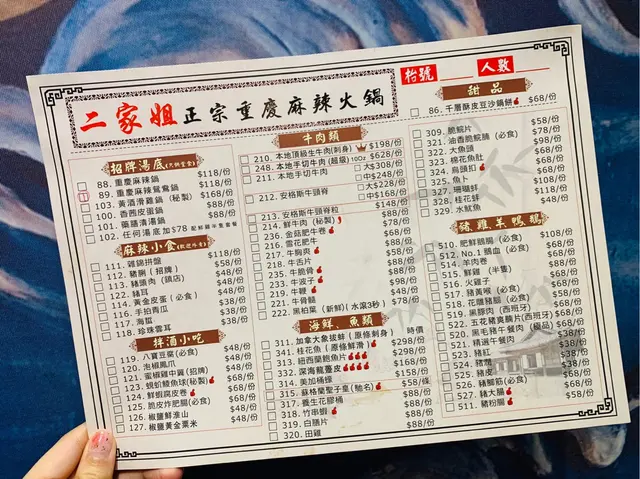 二家姐正宗重慶麻辣火鍋
枱號 人數
招牌湯底(只供堂食)
88. 重慶麻辣鍋 $118/份
89. 重慶麻辣鴛鴦鍋 $118/份
103. 黃酒滑雞鍋(秘製) $168/份
100. 香茜皮蛋鍋 $88/份
101. 藥膳清湯鍋 $88/份
102. 任何湯底加$78
麻辣小食
111. 雜錦拼盤 $118/份
112. 豬脷(招牌) $58/份
113. 豬頭肉
122. 豬耳 $48/份
114. 黃金皮蛋(必食) $38/份
116. 手拍青瓜 $38/份
117. 海蜇 $38/份
118. 珍珠雲耳 $38/份
拌酒小吃
119. 八寶豆腐(必食) $48/份
120. 泡椒鳳爪 $48/份
121. 蜜椒雞中翼(招牌) $48/份
123. 蜆蚧鯪魚球(秘製) $68/份
124. 鮮蝦腐皮卷 $68/份
125. 脆皮炸肥腸(必食) $68/份
126. 椒鹽鮮淮山 $48/份
127. 椒鹽黃金粟米 $48/份
牛肉類
210. 本地頂級生牛肉(刺身) $198/份
248. 本地手切牛肉(超級)10oz $628/份
211. 本地手切牛肉 大$308/份
中$248/份
212. 安格斯牛頸脊 大$228/份
中$168/份
213. 安格斯牛頸脊粒 $148/份
214. 鮮牛肉(秘製) $88/份
236. 金菇肥牛卷 $68/份
216. 雪花肥牛 $88/份
217. 牛胸爽 $58/份
218. 牛舌片 $88/份
235. 牛脆骨 $88/份
233. 牛波子 $68/份
219. 牛𦟌 $48/份
221. 牛骨髓 $88/份
222. 黑柏葉(新鮮)(水滾3秒) $78/份
海鮮、魚類
311. 加拿大象拔蚌(原條刺身) 時價
341. 桂花魚(原條鮮滑) $298/份
313. 紐西蘭鮑魚片 $298/份
332. 深海龍躉皮 $168/份
314. 美加桶蠔 $158/份
315. 蘇格蘭聖子皇(馳名) $58/條
317. 養生花膠桶 $88/份
318. 竹串蝦 $88/份
319. 白膳片 $88/份
320. 田雞 $88/份
甜品
86. 千層酥皮豆沙鍋餅 $68/份
309. 脆鯇片 $58/份
321. 油香脆鯇腩(必食) $78/份
322. 大魚頭 $68/份
323. 棉花魚肚 $68/份
324. 烏頭扣 $68/份
325. 魚卜 $108/份
327. 珊瑚蚌 $108/份
328. 桂花蚌 $98/份
329. 水魷魚 $48/份
豬、雞、羊、鴨、鵝
510. 肥鮮鵝腸(必食) $108/份
512. No.1 鵝血(必食) $58/份
514. 羊肉卷 $88/份
515. 鮮雞(半隻) $168/份
516. 火雞子 $68/份
517. 豬黃喉(必食) $68/份
518. 花雕豬膶 $68/份
519. 黑豚肉(西班牙) $88/份
522. 五花腩爽腩片(西班牙) $68/份
520. 黑毛豬千午餐肉(極品) $38/份
521. 精選午餐肉 $38/份
523. 豬紅 $38/份
524. 豬𦟌 $38/份
525. 豬皮 $38/份
526. 豬腳筋(必食) $68/份
527. 豬大腸 $58/份
511. 豬粉腸 $58/份